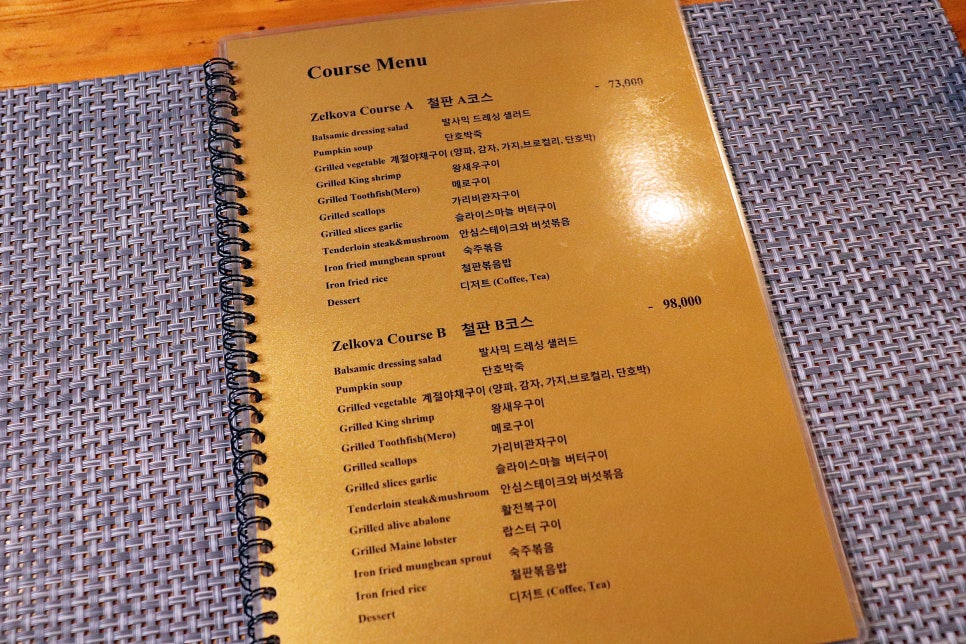 Course Menu
Zelkova Course A 철판 A코스 - 73,000
Balsamic dressing salad 발사믹 드레싱 샐러드
Pumpkin soup 단호박죽
Grilled vegetable 계절야채구이 (양파, 감자, 가지,브로컬리, 단호박)
Grilled King shrimp 왕새우구이
Grilled Toothfish(Mero) 메로구이
Grilled scallops 가리비관자구이
Grilled slices garlic 슬라이스마늘 버터구이
Tenderloin steak&mushroom 안심스테이크와 버섯볶음
Iron fried mungbean sprout 숙주볶음
Iron fried rice 철판볶음밥
Dessert 디저트 (Coffee, Tea)
Zelkova Course B 철판 B코스 - 98,000
Balsamic dressing salad 발사믹 드레싱 샐러드
Pumpkin soup 단호박죽
Grilled vegetable 계절야채구이 (양파, 감자, 가지,브로컬리, 단호박)
Grilled King shrimp 왕새우구이
Grilled Toothfish(Mero) 메로구이
Grilled scallops 가리비관자구이
Grilled slices garlic 슬라이스마늘 버터구이
Tenderloin steak&mushroom 안심스테이크와 버섯볶음
Grilled alive abalone 활전복구이
Grilled Maine lobster 랍스터 구이
Iron fried mungbean sprout 숙주볶음
Iron fried rice 철판볶음밥
Dessert 디저트 (Coffee, Tea)